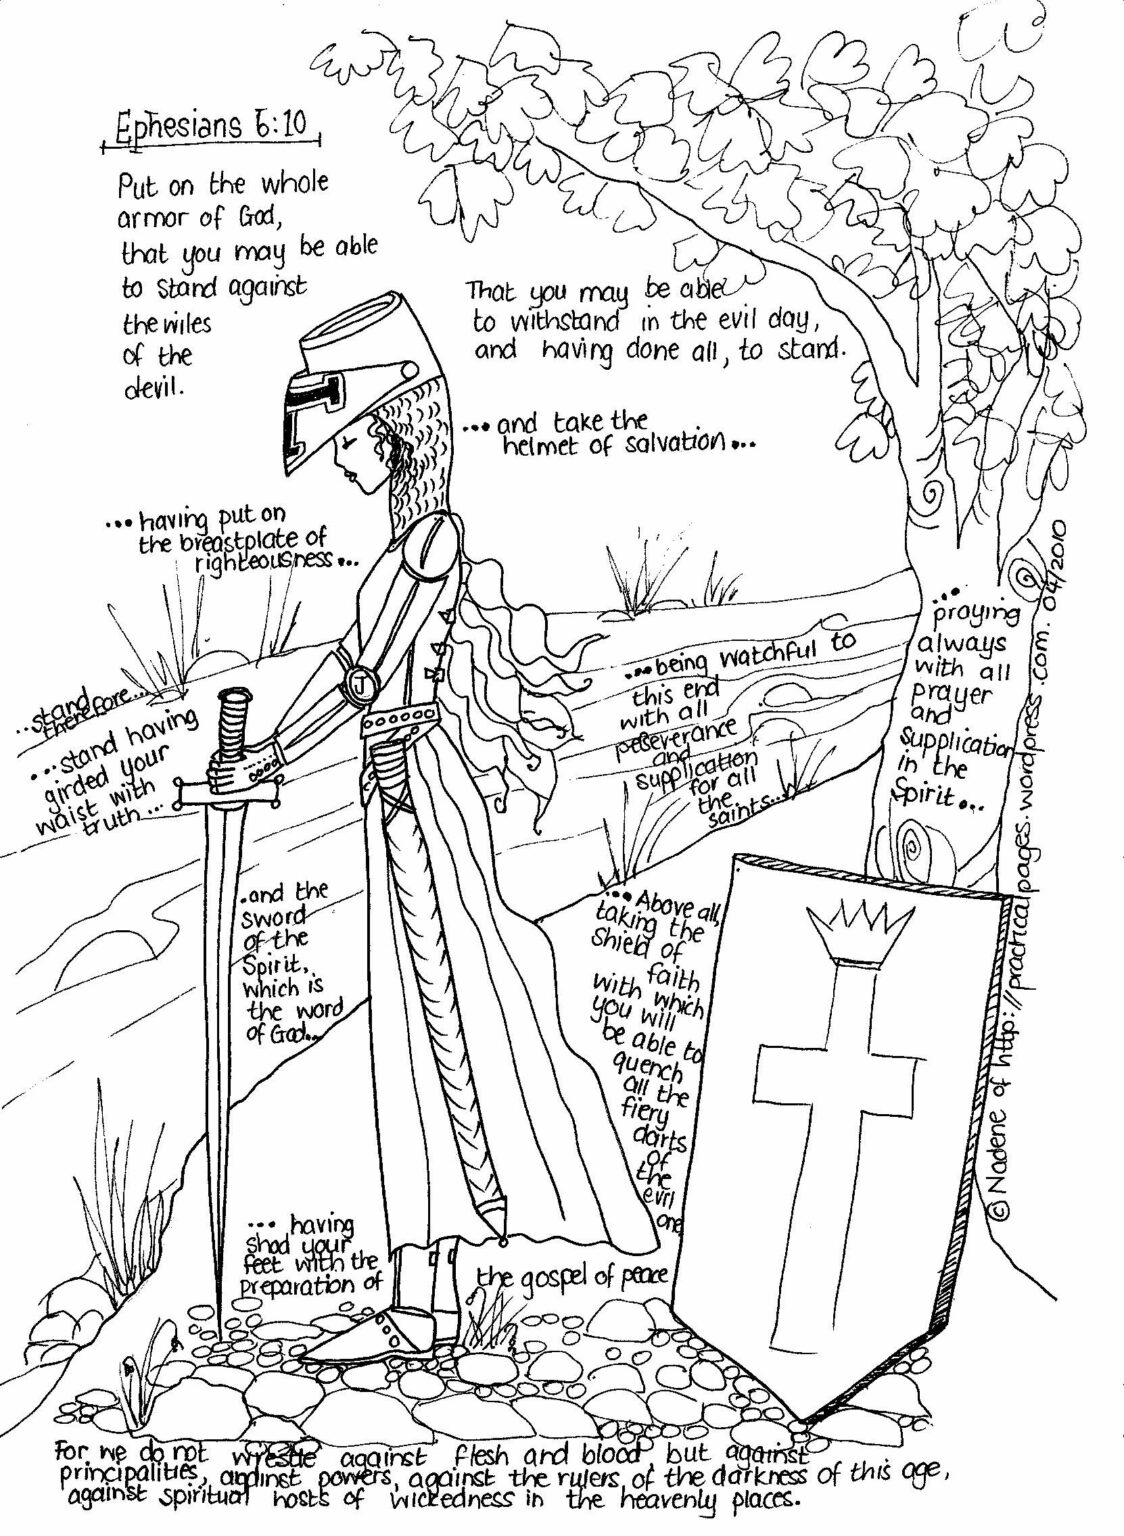 Ephesians 6:10
Put on the whole
armor of God,
that you may be able
to stand against
the wiles
of the
devil.
That you may be able
to withstand in the evil day,
and having done all, to stand.
...and take the
helmet of salvation...
...having put on
the breastplate of
righteousness...
...stand
therefore...
...stand having
girded your
waist with
truth...
J
...being watchful to
this end
with all
peseverance
and
supplication
for all
the
saints...
...praying
always
with all
prayer
and
supplication
in the
Spirit...
.and the
sword
of the
Spirit,
which is
the word
of God...
...Above all,
taking the
shield of
faith
with which
you will
be able to
quench
all the
fiery
darts
of
the
evil
one
...having
shod your
feet with the
preparation of
the gospel of peace
© Nadene of http://practicalpages.wordpress.com. 04/2010
For we do not wrestle against flesh and blood, but against
principalities, against powers, against the rulers of the darkness of this age,
against spiritual hosts of wickedness in the heavenly places.